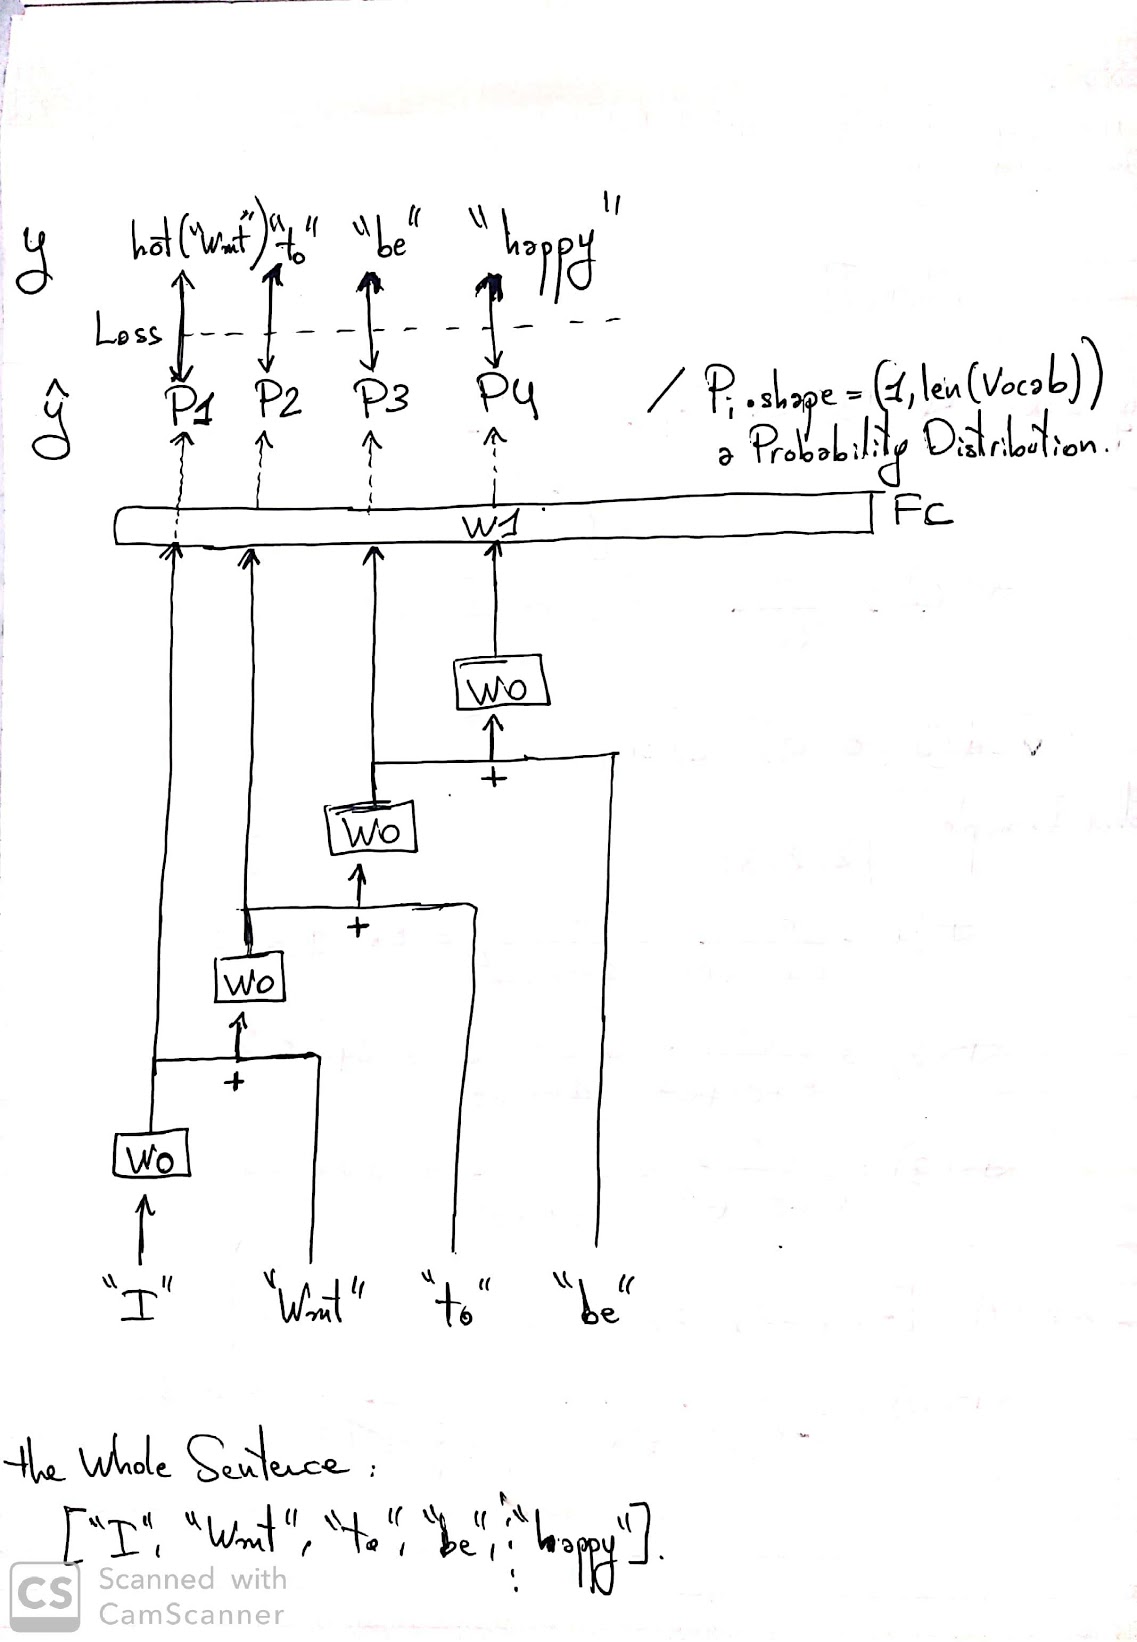 y hot("Want") "to" "be" "happy"
Loss
ŷ P1 P2 P3 P4 / Pi.shape = (1, len(Vocab))
a Probability Distribution.
W1 FC
W0
W0
+
W0
+
W0
+
"I" "Want" "to" "be"
the Whole Sentence :
["I", "Want", "to", "be", "happy"].
CS Scanned with
CamScanner